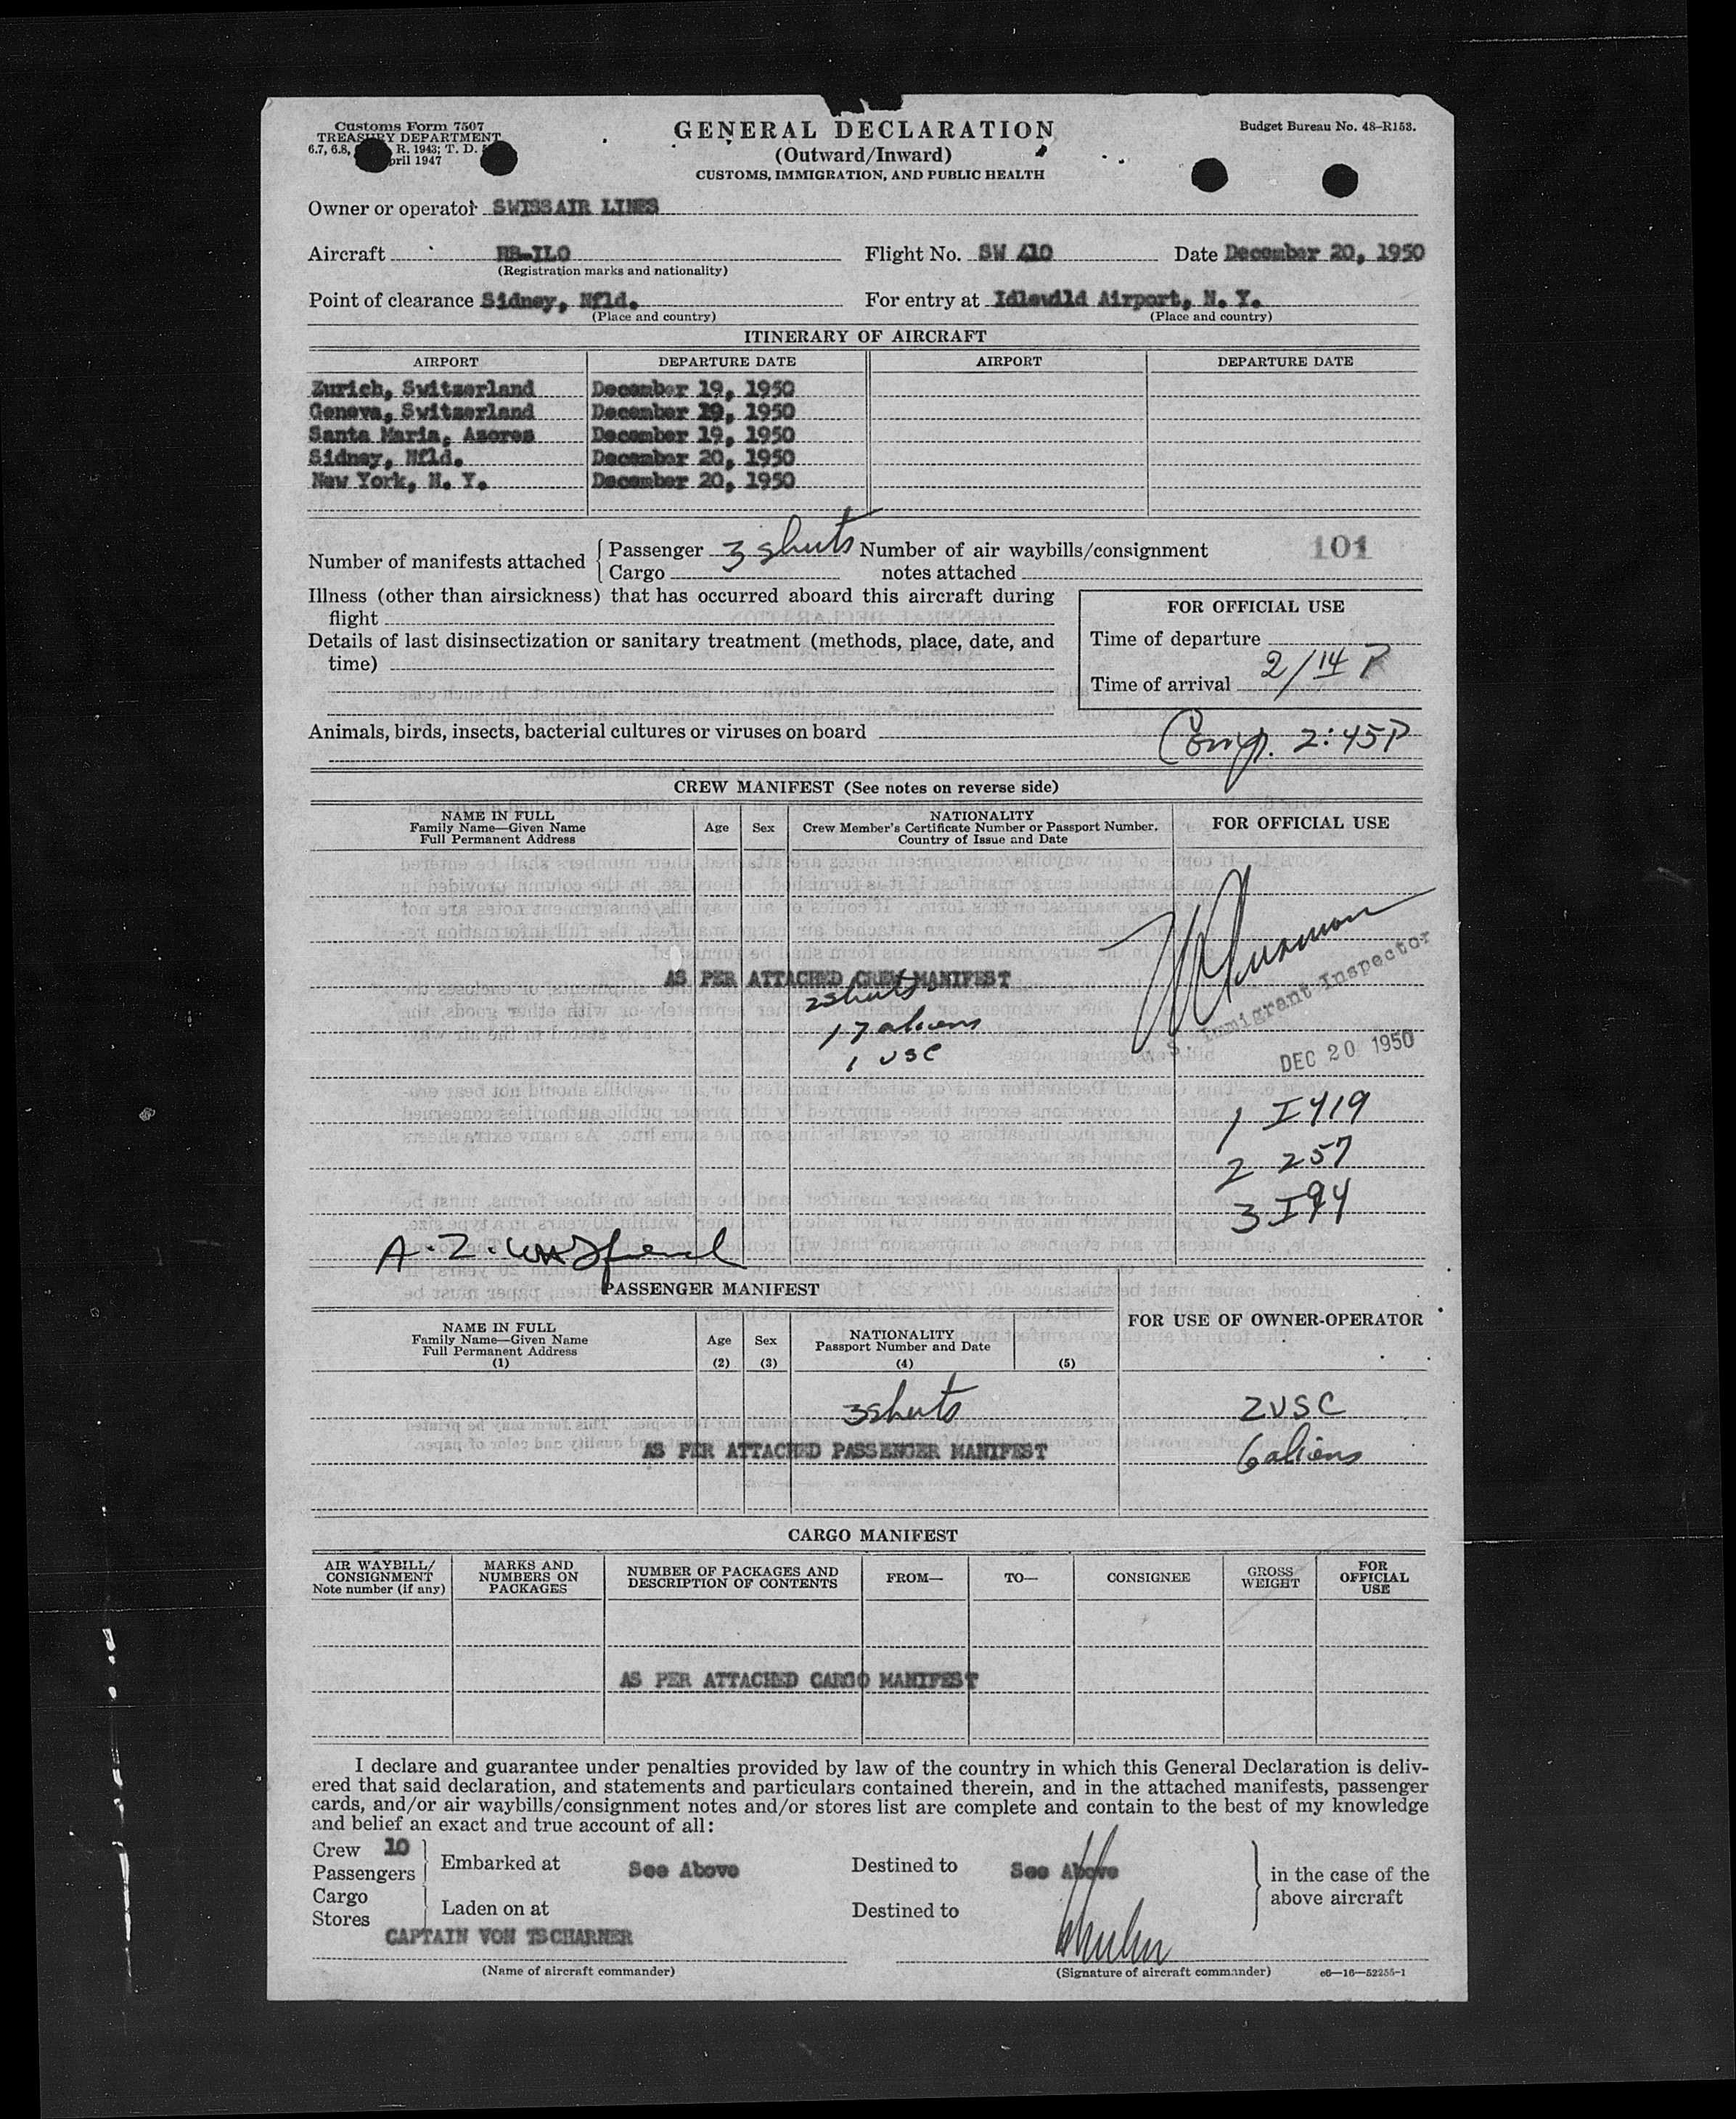 Customs Form 7507
TREASURY DEPARTMENT
6.7, 6.8, R. 1943; T. D.
pril 1947
GENERAL DECLARATION
(Outward/Inward)
CUSTOMS, IMMIGRATION, AND PUBLIC HEALTH
Budget Bureau No. 48-R153.
Owner or operator SWISSAIR LINES
Aircraft HB-ILO Flight No. SW 410 Date December 20, 1950
(Registration marks and nationality)
Point of clearance Sidney, Nfld. For entry at Idlewild Airport, N. Y.
(Place and country) (Place and country)
ITINERARY OF AIRCRAFT
AIRPORT DEPARTURE DATE AIRPORT DEPARTURE DATE
Zurich, Switzerland December 19, 1950
Geneva, Switzerland December 19, 1950
Santa Maria, Azores December 19, 1950
Sidney, Nfld. December 20, 1950
New York, N. Y. December 20, 1950
Number of manifests attached { Passenger 3 sheets Number of air waybills/consignment 101
Cargo notes attached
Illness (other than airsickness) that has occurred aboard this aircraft during
flight
Details of last disinsectization or sanitary treatment (methods, place, date, and
time)
FOR OFFICIAL USE
Time of departure
Time of arrival 2/14 P
Animals, birds, insects, bacterial cultures or viruses on board
Comp. 2:45P
CREW MANIFEST (See notes on reverse side)
NAME IN FULL
Family Name—Given Name
Full Permanent Address
Age Sex
NATIONALITY
Crew Member's Certificate Number or Passport Number.
Country of Issue and Date
FOR OFFICIAL USE
AS PER ATTACHED CREW MANIFEST
2 sheets
17 aliens
1 USC
U. S. Immigrant Inspector
DEC 20 1950
1 I419
2 257
3 I94
PASSENGER MANIFEST
NAME IN FULL
Family Name—Given Name
Full Permanent Address
(1)
Age
(2)
Sex
(3)
NATIONALITY
Passport Number and Date
(4) (5)
FOR USE OF OWNER-OPERATOR
3 sheets 2 USC
AS PER ATTACHED PASSENGER MANIFEST 6 aliens
CARGO MANIFEST
AIR WAYBILL/
CONSIGNMENT
Note number (if any)
MARKS AND
NUMBERS ON
PACKAGES
NUMBER OF PACKAGES AND
DESCRIPTION OF CONTENTS
FROM— TO— CONSIGNEE
GROSS
WEIGHT
FOR
OFFICIAL
USE
AS PER ATTACHED CARGO MANIFEST
I declare and guarantee under penalties provided by law of the country in which this General Declaration is deliv-
ered that said declaration, and statements and particulars contained therein, and in the attached manifests, passenger
cards, and/or air waybills/consignment notes and/or stores list are complete and contain to the best of my knowledge
and belief an exact and true account of all:
Crew 10
Passengers Embarked at See Above Destined to See Above in the case of the
Cargo above aircraft
Stores Laden on at Destined to
CAPTAIN VON TSCHARNER
(Name of aircraft commander) (Signature of aircraft commander) c6—16—52255-1